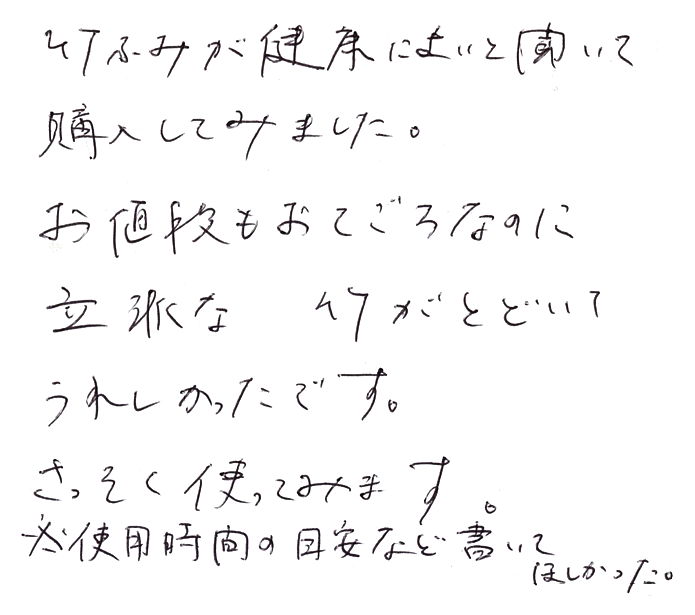 竹ふみが健康によいと聞いて
購入してみました。
お値段もおてごろなのに
立派な 竹がとどいて
うれしかったです。
さっそく使ってみます。
※使用時間の目安など書いて
ほしかった。